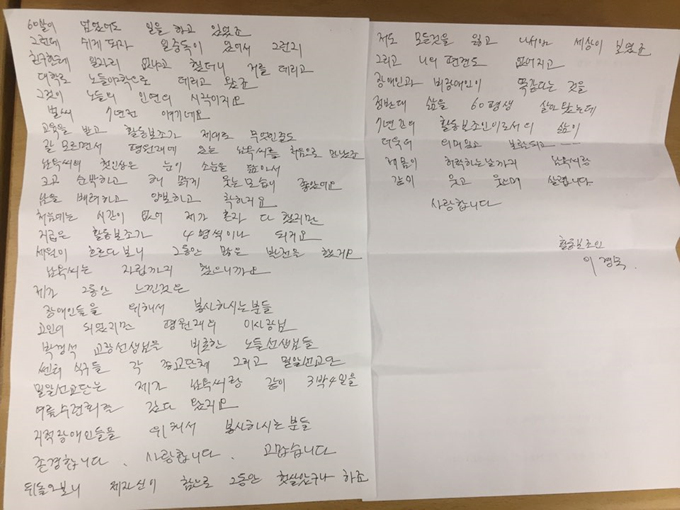 60살이 넘었어도 일을 하고 있었죠
그런데 쉬게 되자 우울증이 있어서 그런지
친구한테 일자리 없냐고 했더니 저를 데리고
대학로 노들야학으로 데리고 왔죠
그것이 노들의 인연의 시작이지요
벌써 7년전 이야기네요
교육을 받고 활동보조가 제대로 무엇인줄도
잘 모르면서 평원재에 있는 남옥씨를 처음으로 만났죠
남옥씨의 첫인상은 눈이 소눈을 닮아서
크고 순박하고 해 맑게 웃는 모습이 좋았어요
남을 배려하고 양보하고 착하지요
처음에는 시간이 없어 제가 혼자 다 했지만
지금은 활동보조가 4명씩이나 되지요
세월이 흐르다 보니 그동안 많은 발전을 했지요
남옥씨는 자립까지 했으니까요
제가 그동안 느낀것은
장애인들을 위해서 봉사하시는 분들
고인이 되셨지만 평원재의 이사장님
박경석 교장선생님을 비롯한 노들선생님들
센터 식구들 각 종교단체 그리고 밀알선교단
밀알선교단는 제가 남옥씨랑 같이 3박4일을
여름수련회죠 갔다 왔지요
지적장애인들을 위해서 봉사하시는 분들
존경합니다. 사랑합니다. 고맙습니다
뒤돌아보니 제자신이 참으로 그동안 헛살았구나 하죠
저도 모든것을 잃고 나서야 세상이 보였죠
그리고 나의 편견도 없어지고
장애인과 비장애인이 똑같다는 것을
정반대 삶을 60평생 살아 왔는데
7년간의 활동보조인으로서의 삶이
더욱더 의미있고 보람되고
힘이 허락하는날까지 남옥씨랑
같이 웃고 웃으며 살렵니다
사랑합니다
활동보조인
이경옥.